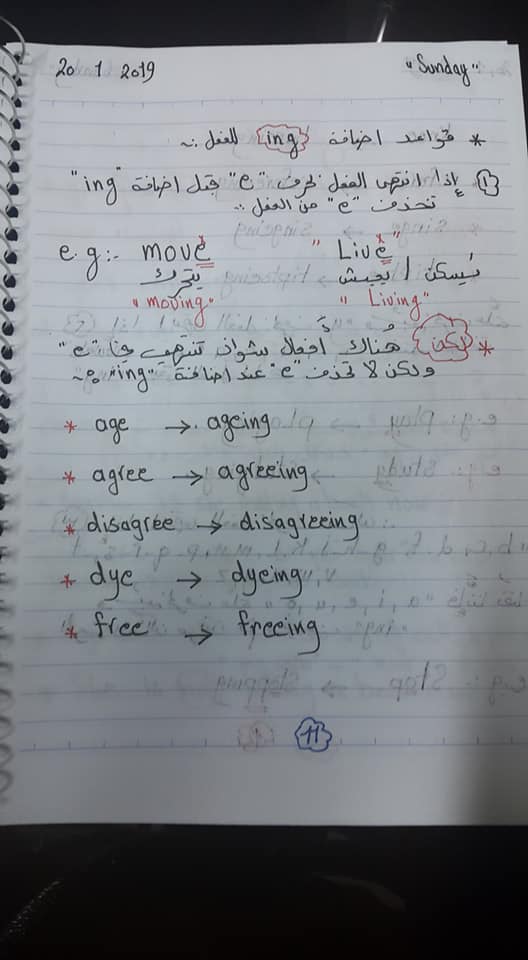 20 1 2019 "Sunday"
* قواعد اضافة ing للفعل :~
① إذا انتهى الفعل بحرف "e" قبل اضافة "ing"
تحذف "e" من الفعل :~
e.g:- move "Live"
يتحرك يسكن / يعيش
"moving" "Living"
* لكن هُناك أفعال شواذ تنتهي بـ "e"
ولكن لا تحذف "e" عند اضافة "ing" :~
* age → ageing
* agree → agreeing
* disagree → disagreeing
* dye → dyeing
* free → freeing
11